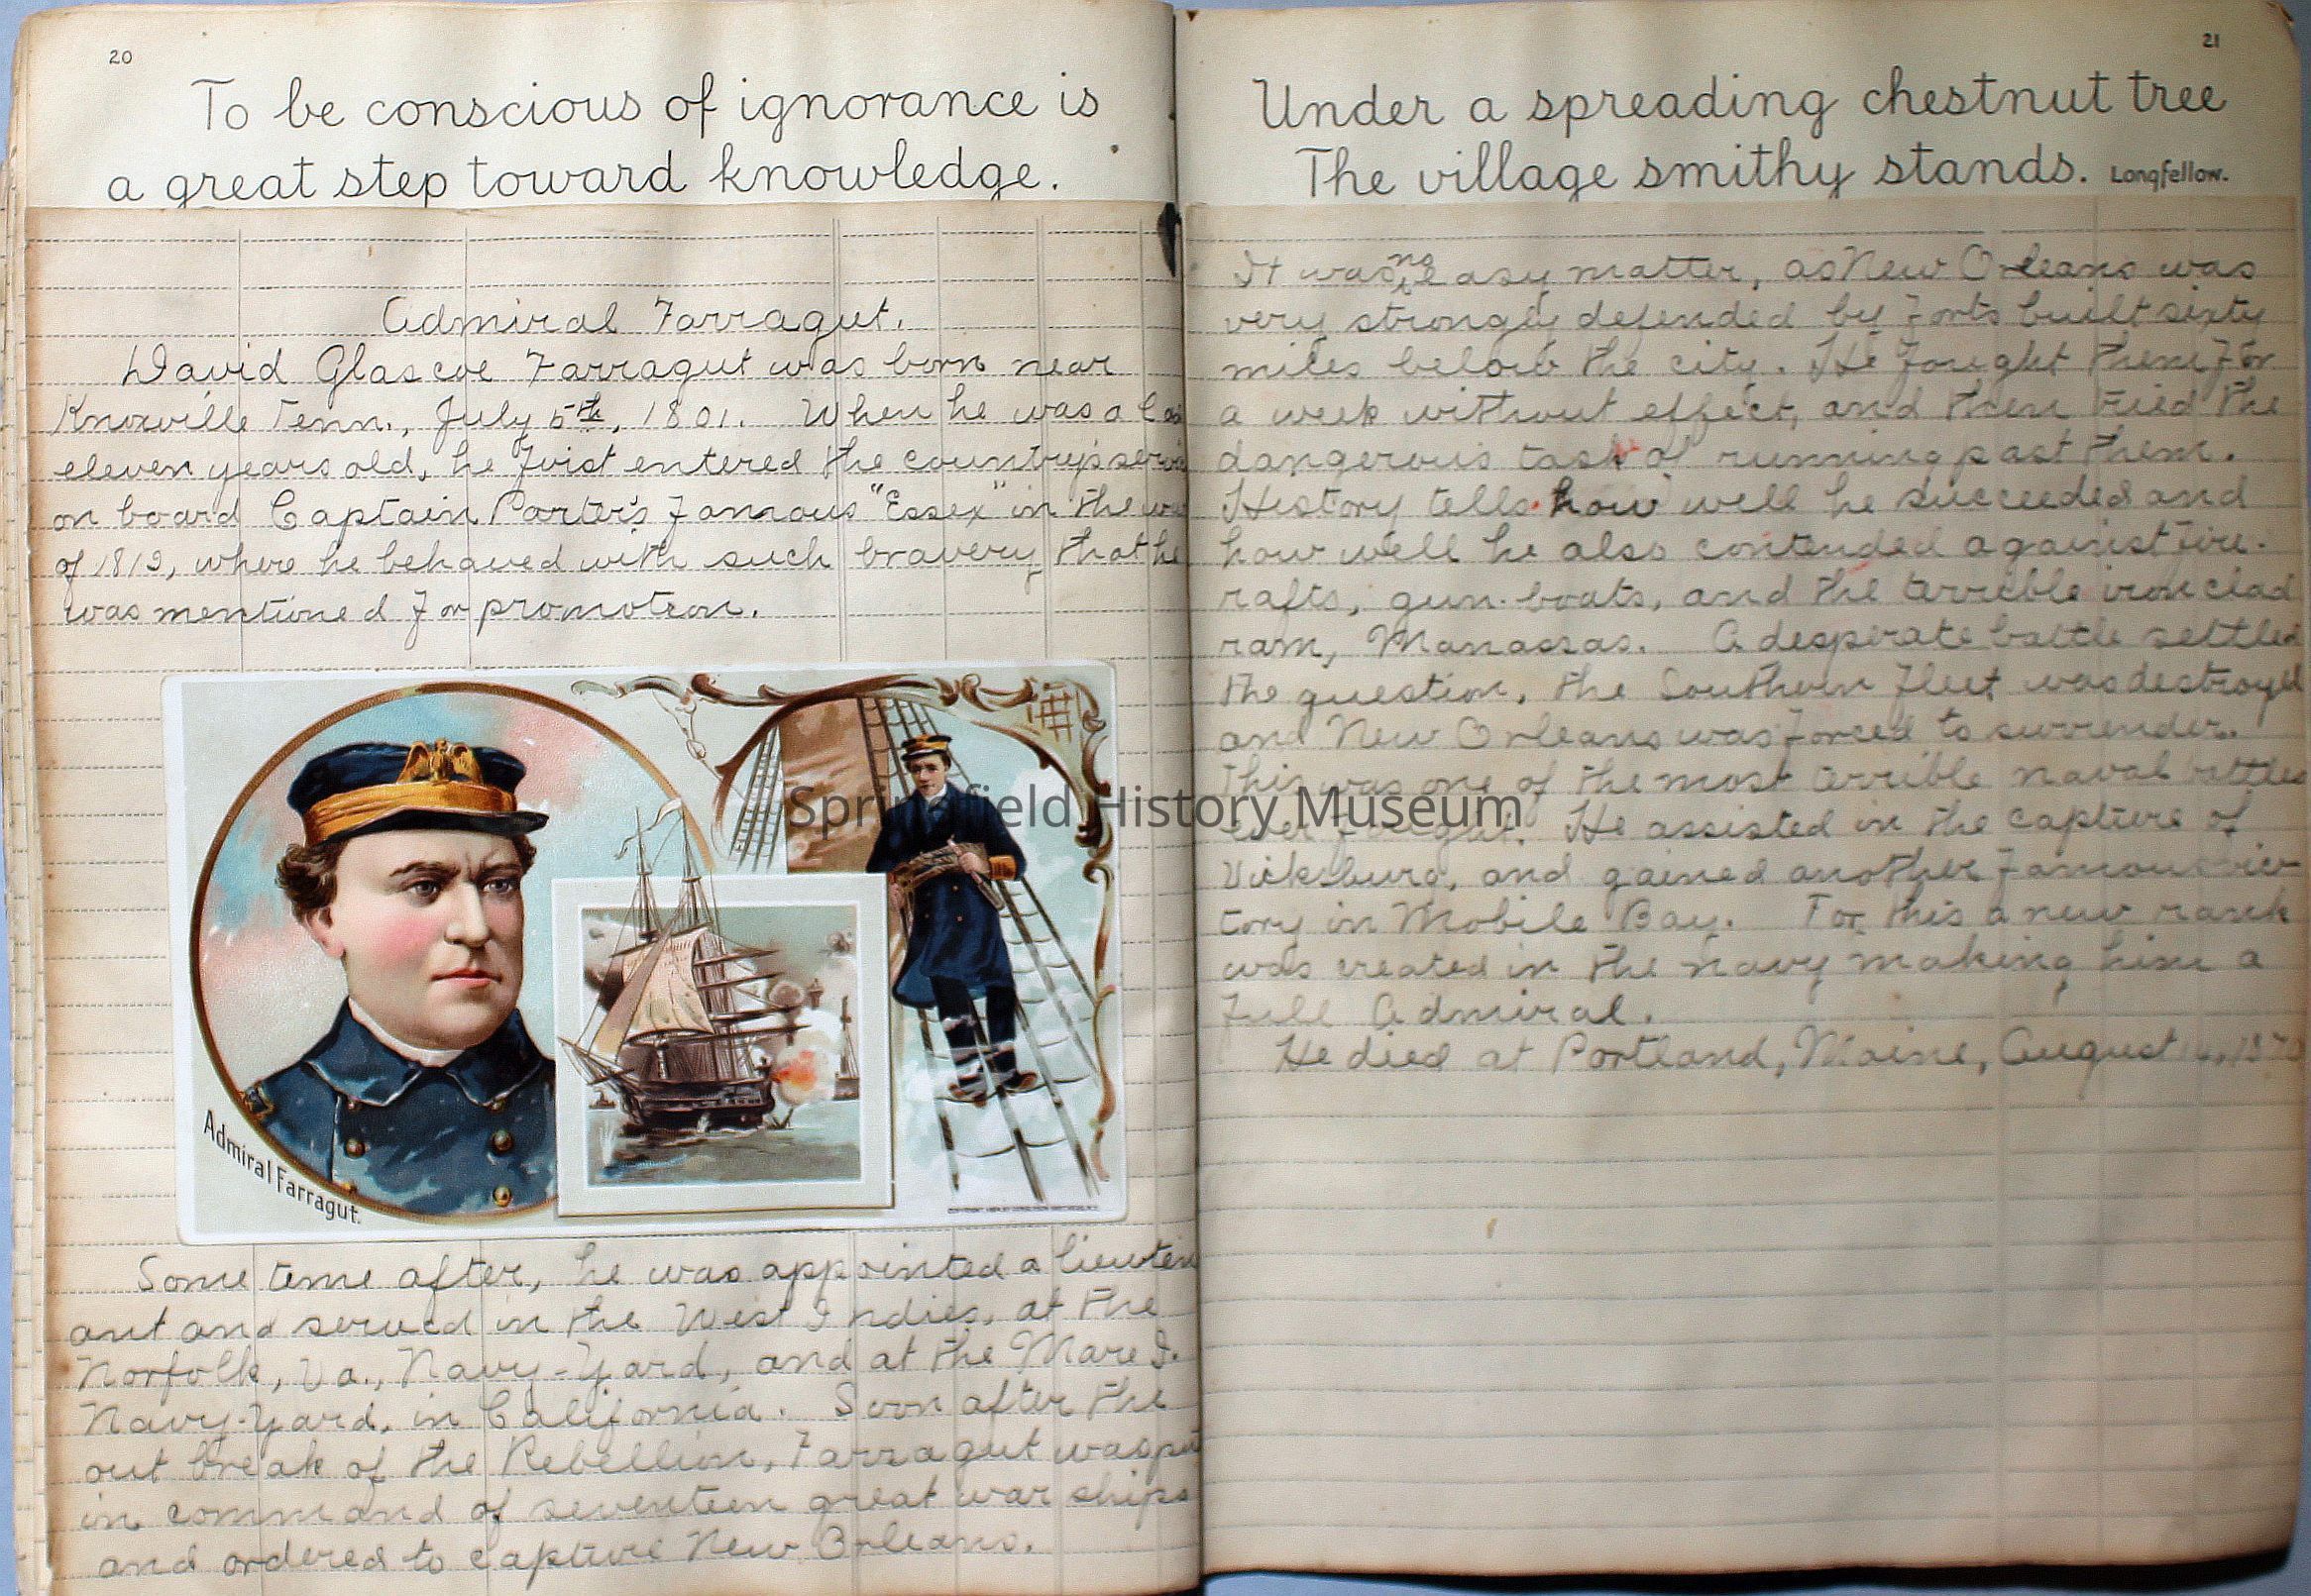 20
To be conscious of ignorance is
a great step toward knowledge.
Admiral Farragut.
David Glascoe Farragut was born near
Knoxville Tenn., July 5th, 1801. When he was a
eleven years old, he first entered the country's
on board Captain Porter's famous "Essex" in the
of 1812, where he behaved with such bravery that he
was mentioned for promotion.
Admiral Farragut.
Some time after, he was appointed a lieuten
ant and served in the West Indies, at the
Norfolk, Va., Navy-Yard, and at the Mare I.
Navy-Yard, in California. Soon after the
out break of the Rebellion, Farragut was put
in command of seventeen great war ships
and ordered to capture New Orleans.
21
Under a spreading chestnut tree
The village smithy stands. Longfellow.
It was no easy matter, as New Orleans was
very strongly defended by forts built sixty
miles below the city. He fought them for
a week without effect, and then tried the
dangerous task of running past them.
History tells how well he succeeded and
how well he also contended against fire-
rafts, gun-boats, and the terrible iron clad
ram, Manassas. A desperate battle settled
the question, the Southern fleet was destroyed
and New Orleans was forced to surrender.
This was one of the most terrible naval battles
ever fought. He assisted in the capture of
Vicksburg, and gained another famous vic-
tory in Mobile Bay. For this a new rank
was created in the navy making him a
full Admiral.
He died at Portland, Maine, August
Springfield History Museum